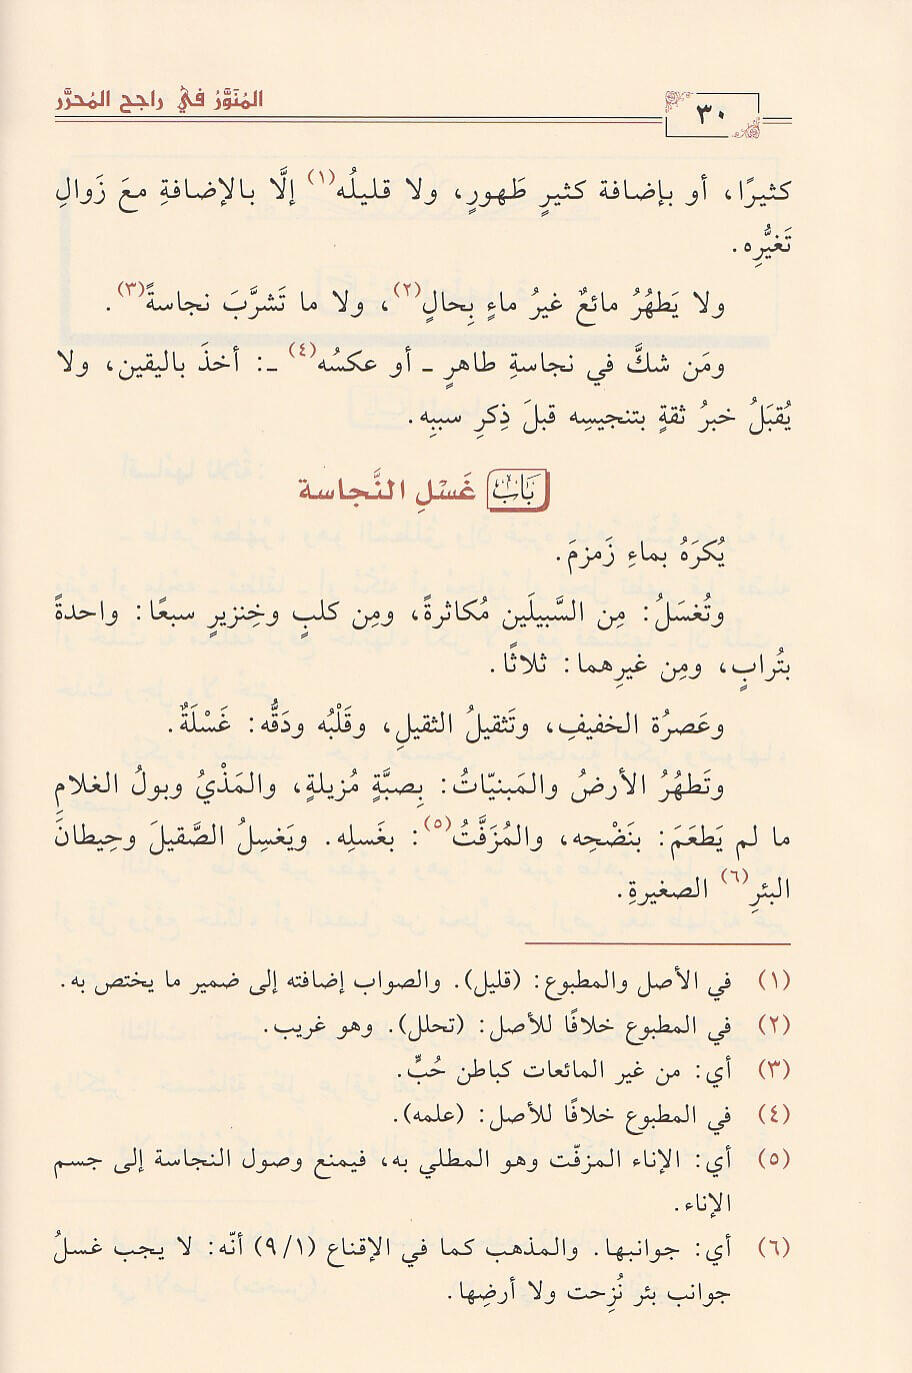 المُنَوَّرُ فِي راجح المُحرَّر
٣٠
كثيرًا، أو بإضافة كثيرٍ طَهورٍ، ولا قليلُه(١) إلَّا بالإضافةِ معَ زَوالِ
تَغيُّرِه.
ولا يَطهُرُ مائعٌ غيرُ ماءٍ بِحالٍ(٢)، ولا ما تَشرَّبَ نجاسةً(٣).
ومَن شكَّ في نجاسةِ طاهرٍ ـ أو عكسُه(٤) ـ: أخذَ باليقين، ولا
يُقبَلُ خبرُ ثقةٍ بتنجيسِه قبلَ ذِكرِ سببِه.
بَابُ غَسْلِ النَّجاسة
يُكرَهُ بماءِ زَمزمَ.
وتُغسَلُ: مِن السَّبيلَين مُكاثرةً، ومِن كلبٍ وخِنزيرٍ سبعًا: واحدةً
بتُرابٍ، ومِن غيرِهما: ثلاثًا.
وعَصرُة الخفيف، وتَثقيلُ الثقيلِ، وقَلْبُه ودَقُّه: غَسْلَةٌ.
وتَطهُرُ الأرضُ والمَبنيّاتُ: بِصبَّةٍ مُزيلةٍ، والمَذْيُ وبولُ الغلامِ
ما لم يَطعَمَ: بنَضْحِه، والمُزَفَّتُ(٥): بغَسلِه. ويَغسِلُ الصَّقيلَ وحِيطانَ
البئرِ(٦) الصغيرةِ.
(١) في الأصل والمطبوع: (قليل). والصواب إضافته إلى ضمير ما يختص به.
(٢) في المطبوع خلافًا للأصل: (تحلل). وهو غريب.
(٣) أي: من غير المائعات كباطن حُبٍّ.
(٤) في المطبوع خلافًا للأصل: (علمه).
(٥) أي: الإناء المزفّت وهو المطلي به، فيمنع وصول النجاسة إلى جسم
الإناء.
(٦) أي: جوانبها. والمذهب كما في الإقناع (٩/١) أنّه: لا يجب غسلُ
جوانب بئر نُزِحت ولا أرضِها.